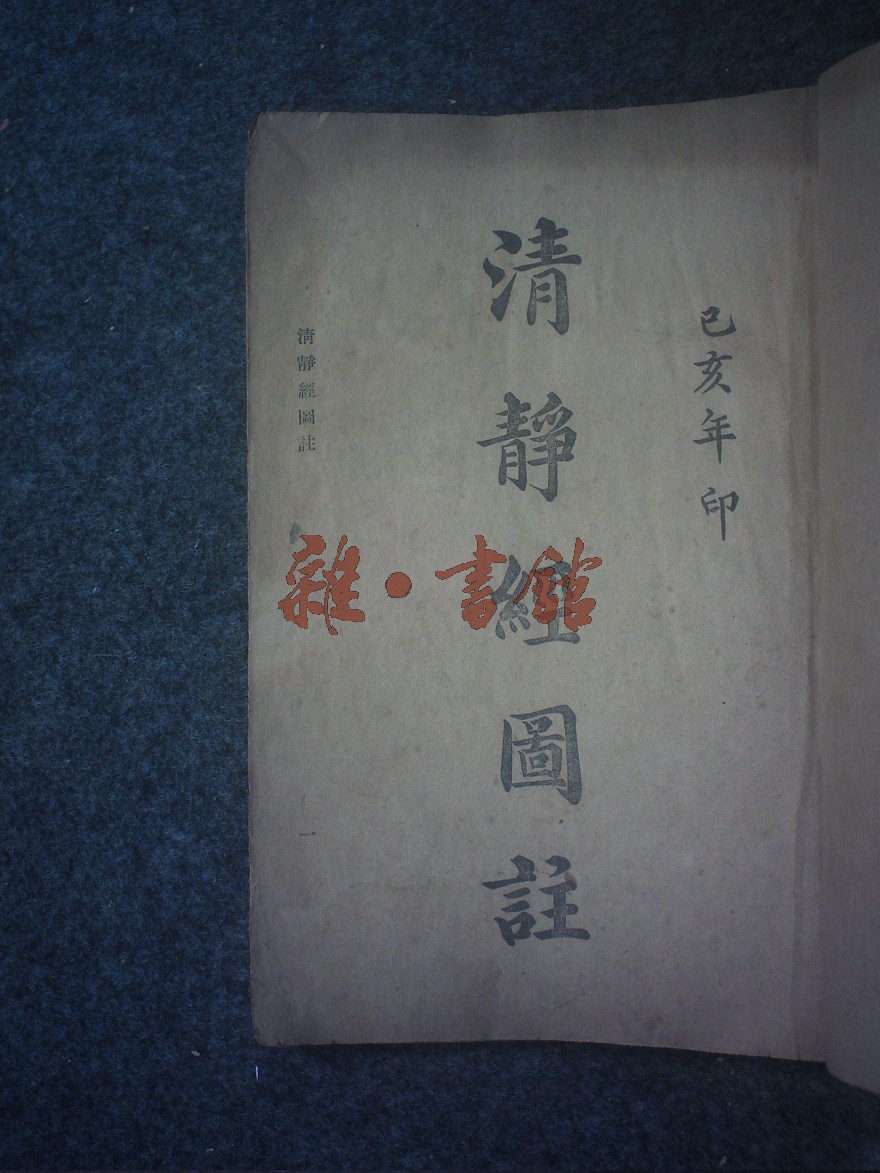 己亥年印
清靜經圖註
清靜經圖註
一
雜·書館